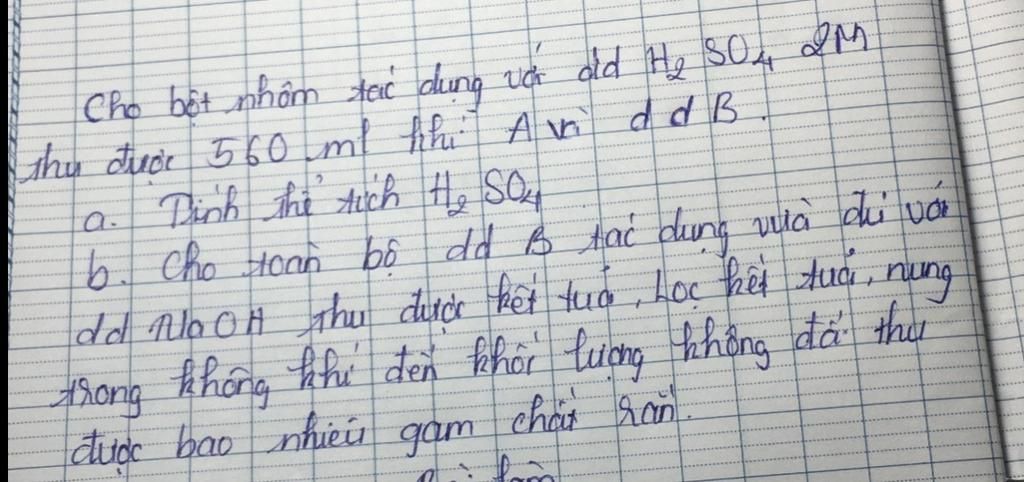 Cho bột nhôm tác dụng với dd H₂SO₄ 2M
thu được 560 ml khí A và d d B.
a. Tính thể tích H₂SO₄
b. Cho toàn bộ dd B tác dụng vừa đủ với
dd NaOH thu được kết tủa, Lọc kết tủa, nung
trong không khí đến khối lượng không đổi thu
được bao nhiêu gam chất rắn.